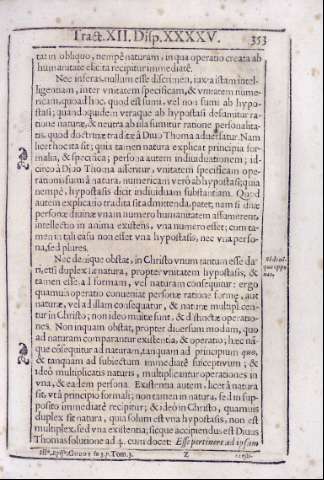 Tract. XII. Disp. XXXXV. 353
tat in obliquo, nempè naturam, in qua operatio creata ab
humanitate elicita recipitur immediatè.
Nec inferas, nullum esse discrimen, iuxta istam intel-
ligentiam, inter vnitatem specificam, & vnitatem nume-
ricam, quoad hoc, quod est sumi, vel non sumi ab hypo-
stasi; quandoquidem vtraque ab hypostasi desumitur ra-
tione naturæ, & neutra ab illa sumitur ratione personalita-
tis, quod doctrinæ traditæ à Diuo Thoma aduersatur. Nam
licet hoc ita sit; quia tamen natura explicat principia for-
malia, & specifica; persona autem indiuiduationem; id-
circo à Diuo Thoma asseritur, vnitatem specificam ope-
rationis sumi à natura, numericam verò ab hypostasi; quia
nempè, hypostasis dicit indiuiduam substantiam. Quod
autem explicatio tradita sit admittenda, patet; nam si duæ
personæ diuinæ vnam numero humanitatem assumerent,
intellectio in anima existens, vna numero esset; cum ta-
men in tali casu non esset vna hypostasis, nec vna perso-
na, sed plures.
Nec denique obstat, in Christo vnum tantum esse da-
ri, etsi duplex sit natura, propter vnitatem hypostasis, &
tamen esse ad formam, vel naturam consequitur: ergo
quamuis operatio conueniat personæ ratione formæ, aut
naturæ, vel ad illam consequatur, & naturæ multiplicen-
tur in Christo; non ideo multæ sunt, & distinctæ operatio-
nes. Non inquam obstat, propter diuersum modum, quo
ad naturam comparantur existentia, & operatio; hæc nā-
que cōsequitur ad naturam, tanquam ad principium quo,
& tanquam ad subiectum immediatè susceptiuum; &
ideò multiplicatis naturis, multiplicantur operationes in
vna, & eadem persona. Existentia autem, licet à natura
sit, vt à principio formali; non tamen in natura, sed in sup-
posito immediatè recipitur; & ideò in Christo, quamuis
duplex sit natura, quia solum est vna hypostasis, non est
nisi vna existentia; sicque accipiendus est Diuus
Thomas solutione ad 4. cum docet: Esse pertinere ad ipsam
Z